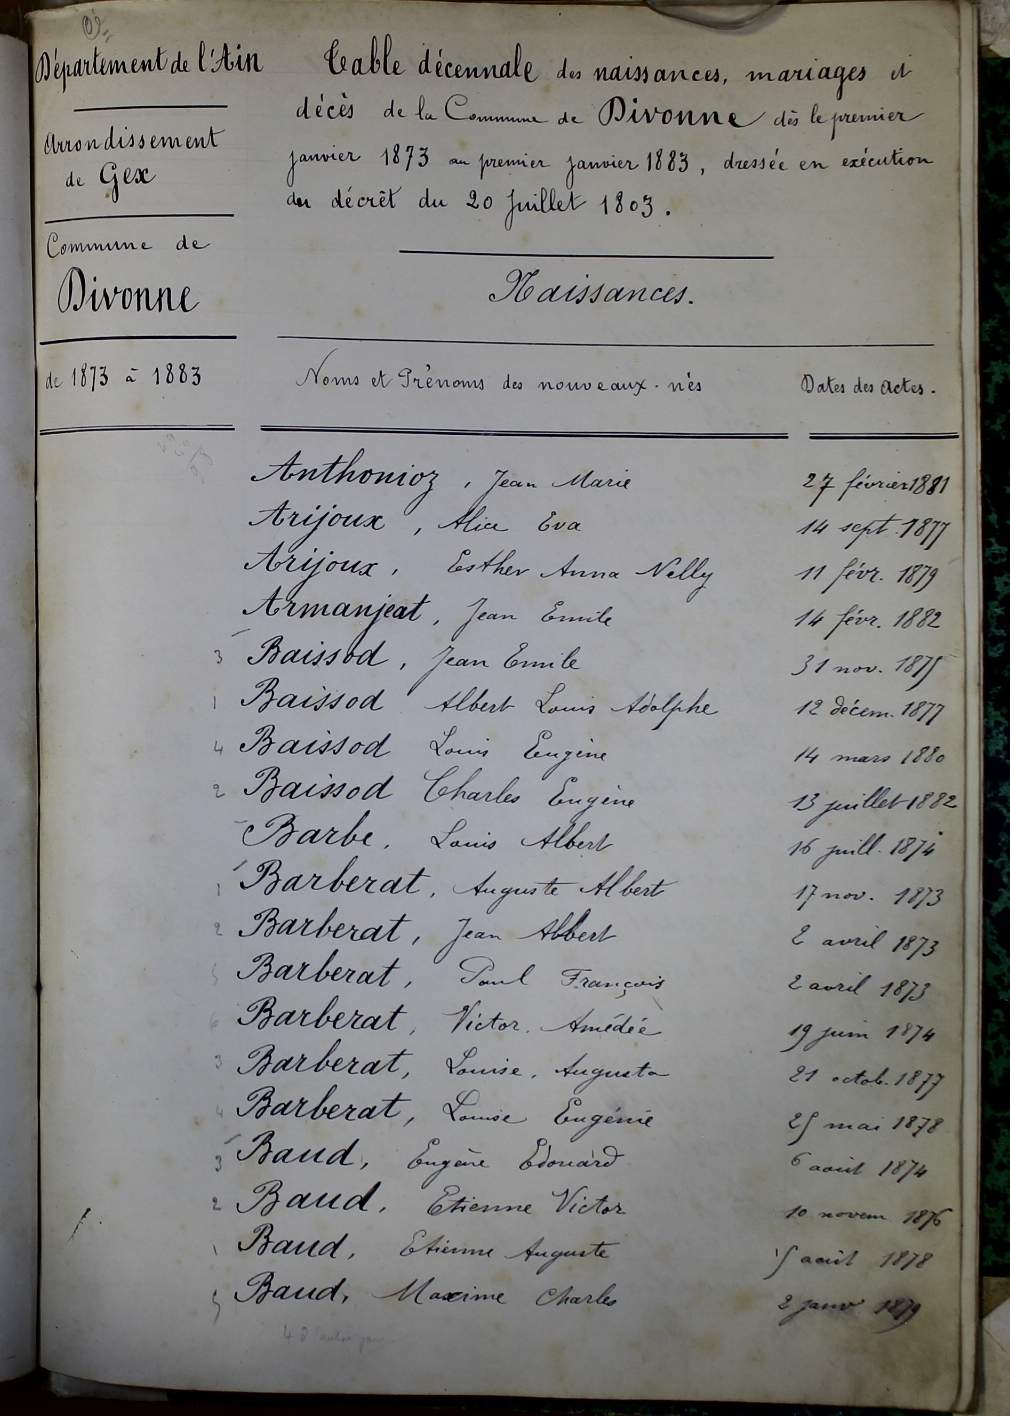 Département de l'Ain
Arrondissement
de Gex
Commune de
Divonne
de 1873 à 1883
Table décennale des naissances, mariages et
décès de la Commune de Divonne dès le premier
janvier 1873 au premier janvier 1883, dressée en exécution
du décrêt du 20 Juillet 1803.
Naissances.
Noms et Prénoms des nouveaux-nés Dates des Actes.
Anthonioz, Jean Marie 27 février 1881
Arijoux, Alice Eva 14 sept. 1877
Arijoux, Esther Anna Nelly 11 févr. 1879
Armanjeat, Jean Emile 14 févr. 1882
3 Baissod, Jean Emile 31 nov. 1875
1 Baissod Albert Louis Adolphe 12 décem. 1877
4 Baissod Louis Eugène 14 mars 1880
2 Baissod Charles Eugène 13 juillet 1882
Barbe, Louis Albert 16 juill. 1874
1 Barberat, Auguste Albert 17 nov. 1873
2 Barberat, Jean Albert 2 avril 1873
5 Barberat, Paul François 2 avril 1873
6 Barberat, Victor Amédée 19 juin 1874
3 Barberat, Louise, Augusta 21 octob. 1877
4 Barberat, Louise Eugénie 25 mai 1878
3 Baud, Eugène Edouard 6 août 1874
2 Baud, Etienne Victor 10 novem 1876
1 Baud, Etienne Auguste 5 août 1878
5 Baud, Maxime Charles 2 janv 1879